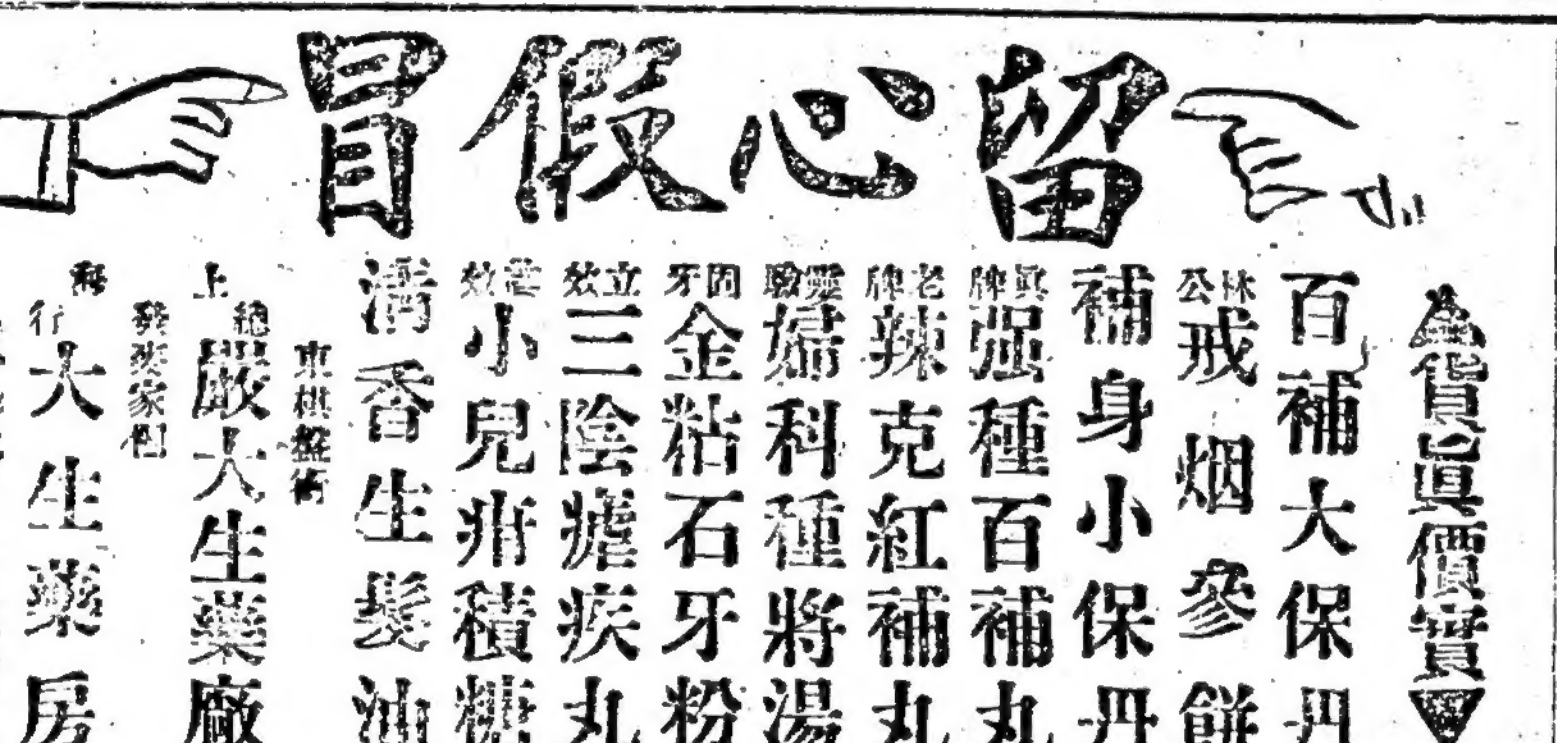 留心假冒
貨眞價實
百補大保丹
林公戒烟參餅
補身小保丹
眞牌强種百補丸
老牌辣克紅補丸
靈驗婦科種將湯
固牙金粘石牙粉
立效三陰瘧疾丸
效小兒疳積糖
清香生髮油
東棋盤街
總廠大生藥廠
上
發家
行大生藥房